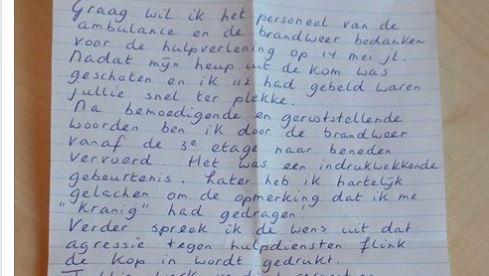 Graag wil ik het personeel van de
ambulance en de brandweer bedanken
voor de hulpverlening op 14 mei jl.
Nadat mijn heup uit de kom was
geschoten en ik 112 had gebeld waren
jullie snel ter plekke.
Na bemoedigende en geruststellende
woorden ben ik door de brandweer
vanaf de 3e etage naar beneden
vervoerd. Het was een indrukwekkende
gebeurtenis. Later heb ik hartelijk
gelachen om de opmerking dat ik me
"Kranig" had gedragen!
Verder spreek ik de wens uit dat
agressie tegen hulpdiensten flink
de kop in wordt gedrukt.